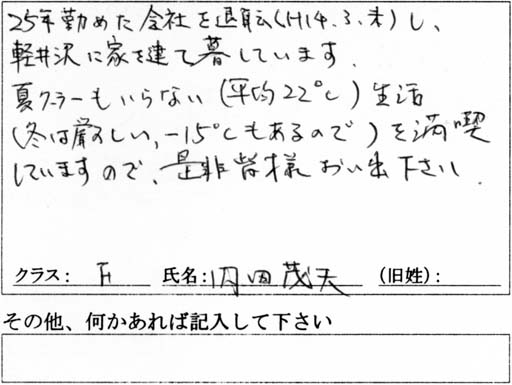 25年勤めた会社を退転(H14.3.末)し、
軽井沢に家を建て暮しています.
夏クーラーもいらない(平均22℃)生活
(冬は厳しい,-15℃もあるので)を満喫
していますので、是非皆様おい出下さい.
クラス: F 氏名:内田茂夫 (旧姓):
その他、何かあれば記入して下さい